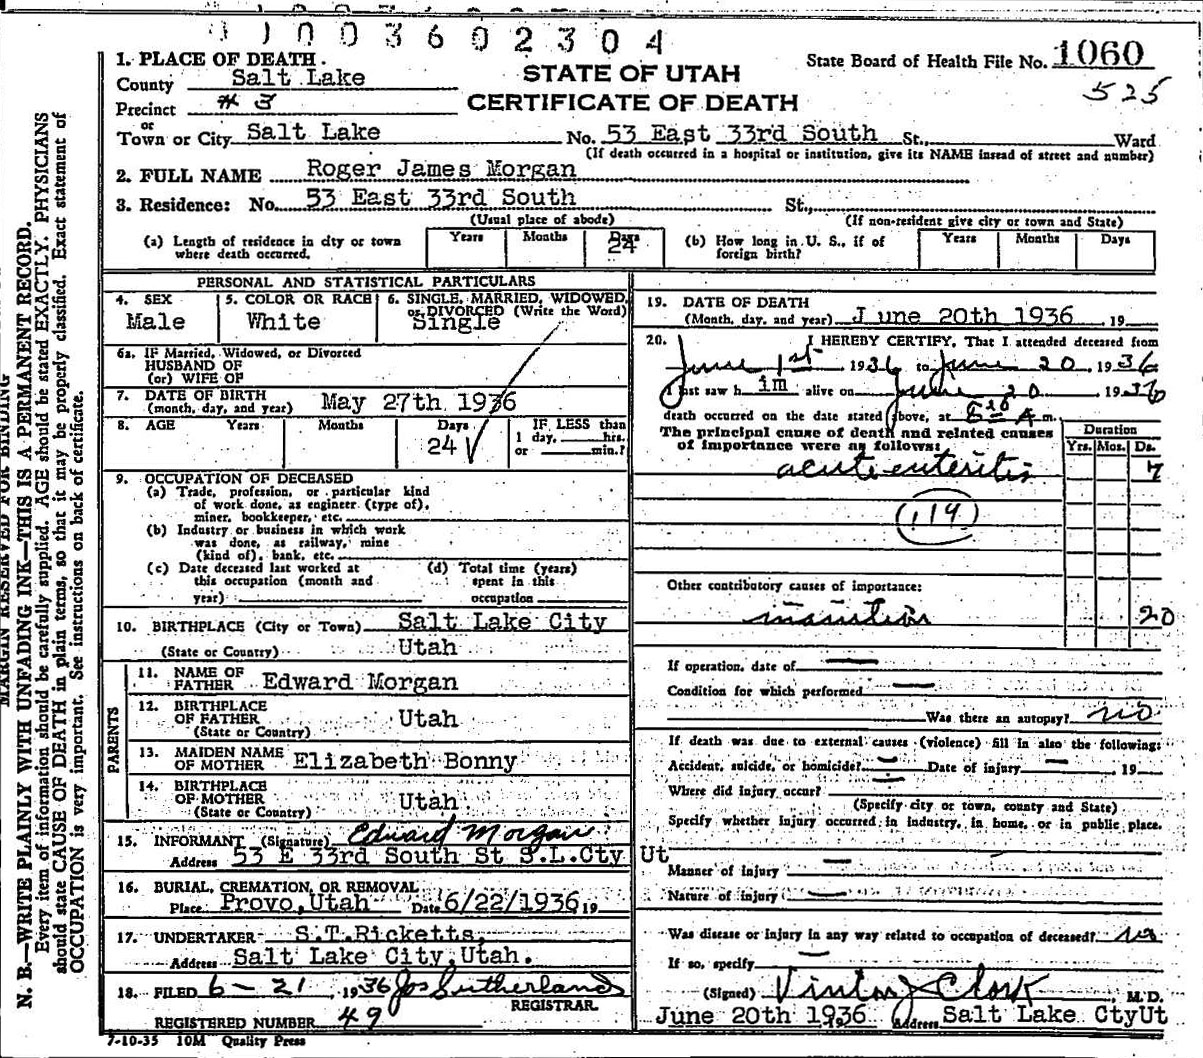 1003602304
1. PLACE OF DEATH.
County Salt Lake
Precinct # 3
or
Town or City Salt Lake No. 53 East 33rd South St., Ward
(If death occurred in a hospital or institution, give its NAME instead of street and number)
STATE OF UTAH
CERTIFICATE OF DEATH
State Board of Health File No. 1060
525
2. FULL NAME Roger James Morgan
3. Residence: No. 53 East 33rd South St.,
(Usual place of abode) (If non-resident give city or town and State)
(a) Length of residence in city or town where death occurred. Years Months Days 24
(b) How long in U. S., if of foreign birth? Years Months Days
PERSONAL AND STATISTICAL PARTICULARS
4. SEX Male
5. COLOR OR RACE White
6. SINGLE, MARRIED, WIDOWED, or DIVORCED (Write the Word) Single
6a. IF Married, Widowed, or Divorced
HUSBAND OF
(or) WIFE OF
7. DATE OF BIRTH
(month, day, and year) May 27th 1936
8. AGE Years Months Days 24 IF LESS than
1 day, hrs.
or min.?
9. OCCUPATION OF DECEASED
(a) Trade, profession, or particular kind
of work done, as engineer (type of),
miner, bookkeeper, etc.
(b) Industry or business in which work
was done, as railway, mine
(kind of), bank, etc.
(c) Date deceased last worked at
this occupation (month and
year)
(d) Total time (years)
spent in this
occupation
10. BIRTHPLACE (City or Town) Salt Lake City
(State or Country) Utah
PARENTS
11. NAME OF
FATHER Edward Morgan
12. BIRTHPLACE
OF FATHER Utah
(State or Country)
13. MAIDEN NAME
OF MOTHER Elizabeth Bonny
14. BIRTHPLACE
OF MOTHER Utah
(State or Country)
15. INFORMANT (Signature) Edward Morgan
Address 53 E 33rd South St S.L.Cty Ut
16. BURIAL, CREMATION, OR REMOVAL
Place Provo,Utah Date 6/22/1936 19
17. UNDERTAKER S.T.Ricketts,
Address Salt Lake City,Utah.
18. FILED 6-21, 1936 Jos Sutherland
REGISTRAR.
REGISTERED NUMBER 49
7-10-35 10M Quality Press
19. DATE OF DEATH
(Month, day, and year) June 20th 1936, 19
20. I HEREBY CERTIFY, That I attended deceased from
June 1st 1936 to June 20 1936
last saw him alive on June 20 1936
death occurred on the date stated above, at A m.
The principal cause of death and related causes
of importance were as follows:
Duration
Yrs. Mos. Ds.
acute enteritis 7
(119)
Other contributory causes of importance:
inanition 20
If operation, date of
Condition for which performed
Was there an autopsy? no
If death was due to external causes (violence) fill in also the following:
Accident, suicide, or homicide? Date of injury , 19
Where did injury occur?
(Specify city or town, county and State)
Specify whether injury occurred in industry, in home, or in public place.
Manner of injury
Nature of injury
Was disease or injury in any way related to occupation of deceased? no
If so, specify
(Signed) Vinton J Clark, M.D.
June 20th 1936 Address Salt Lake CtyUt
MARGIN RESERVED FOR BINDING
N. B.—WRITE PLAINLY WITH UNFADING INK—THIS IS A PERMANENT RECORD.
Every item of information should be carefully supplied. AGE should be stated EXACTLY. PHYSICIANS
should state CAUSE OF DEATH in plain terms, so that it may be properly classified. Exact statement of
OCCUPATION is very important. See instructions on back of certificate.